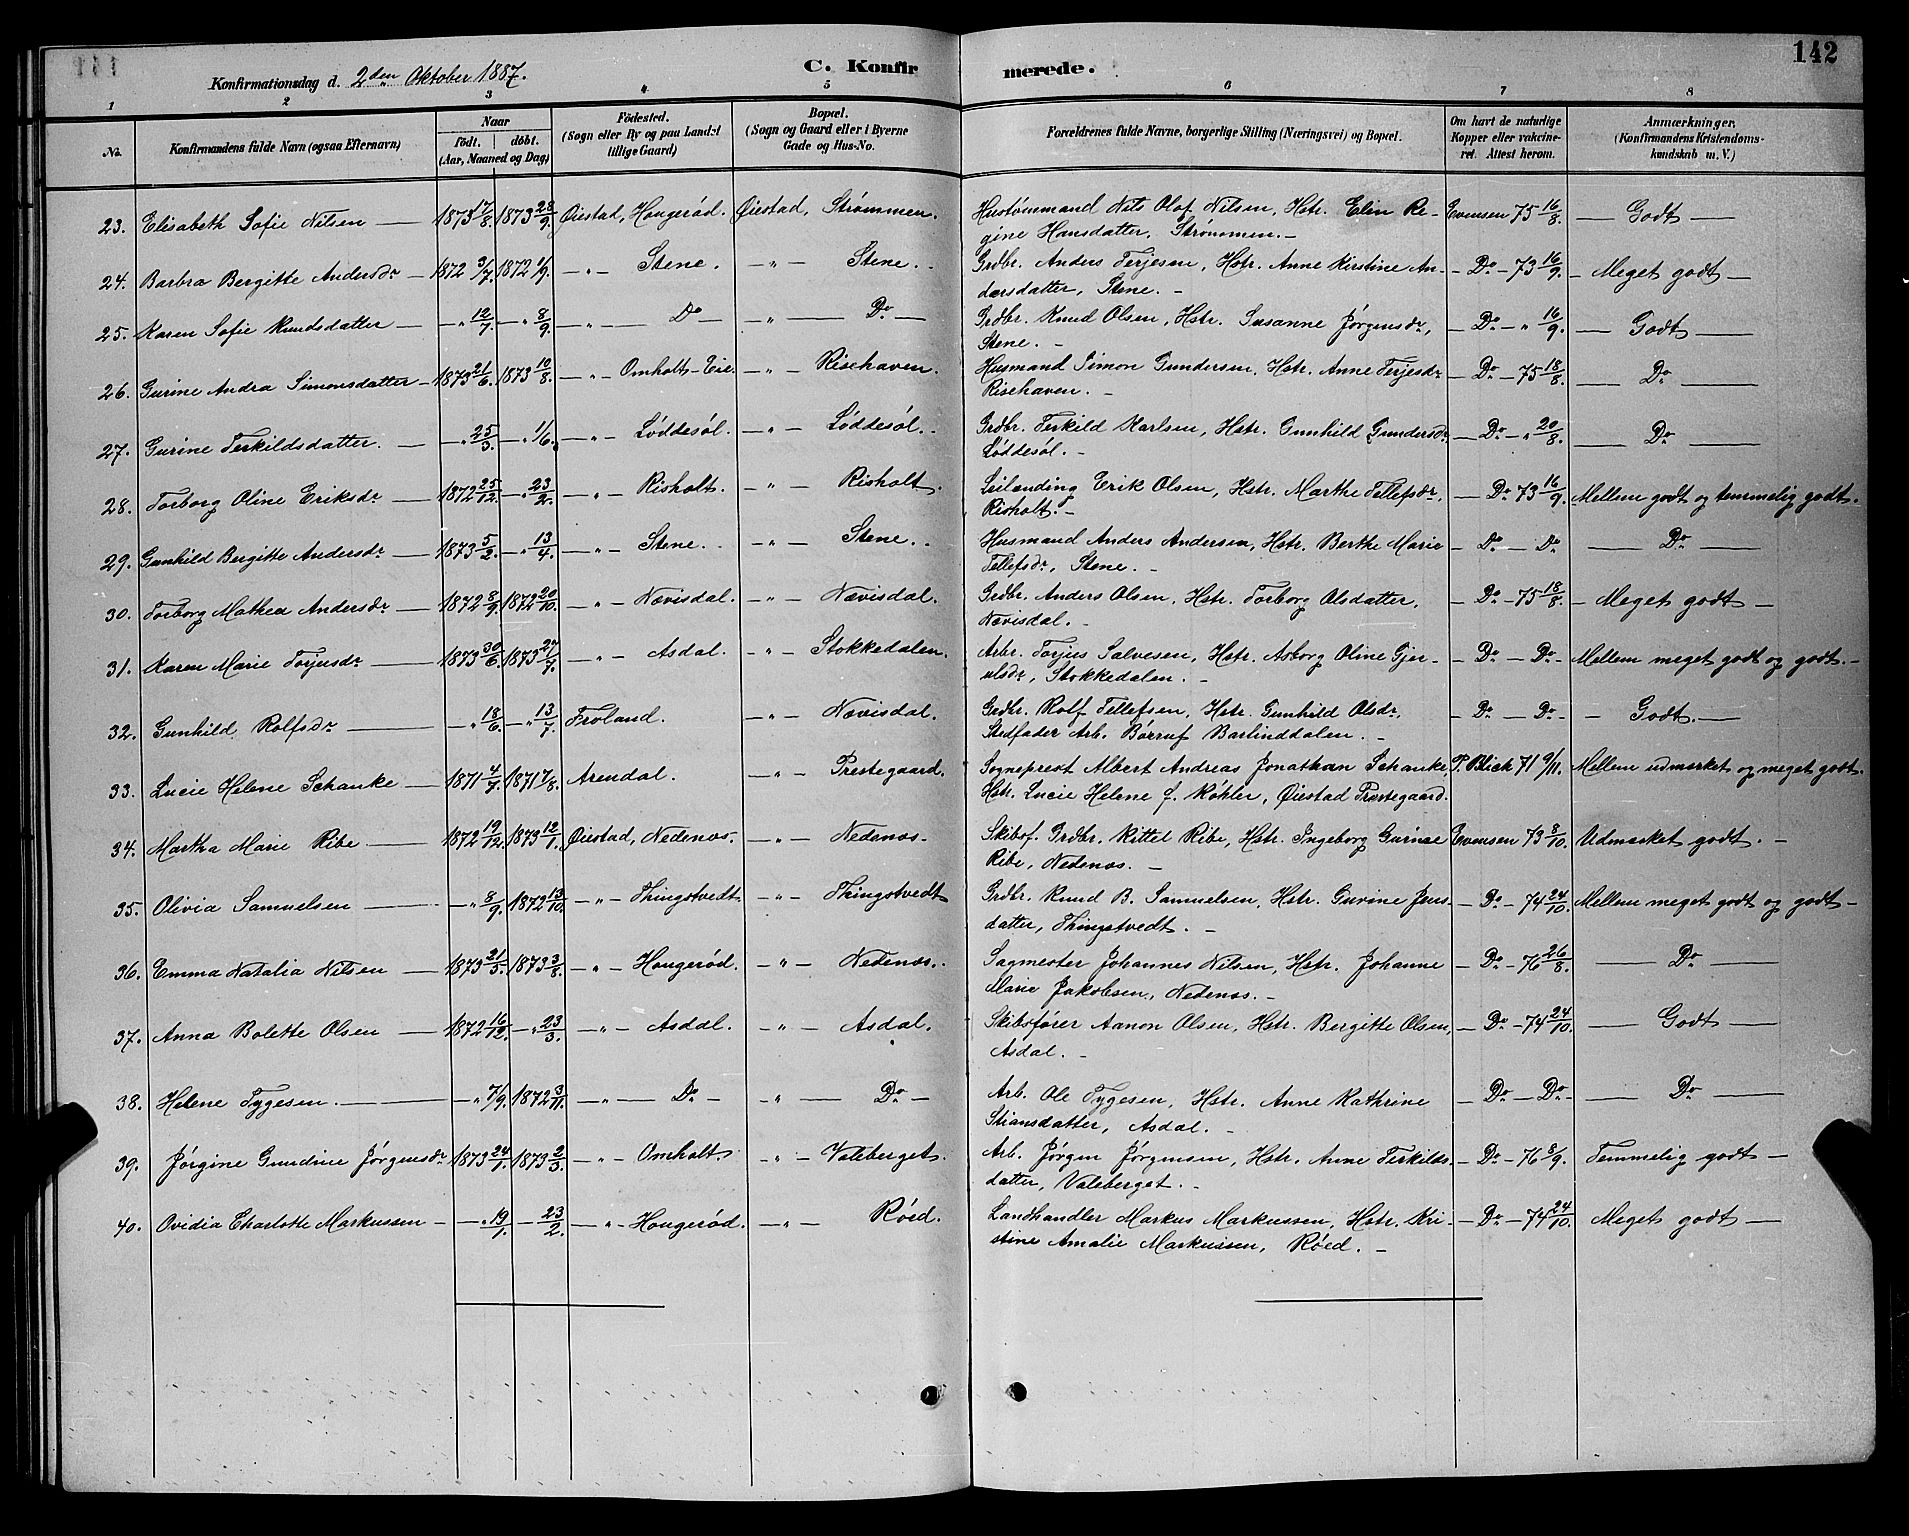 142
Konfirmationsdag d. 2den Oktober 1887.
C. Konfirmerede.
1 2 3 4 5 6 7 8
No. Konfirmandens fulde Navn (ogsaa Efternavn) Naar født. døbt. (Aar, Maaned og Dag) Fødested. (Sogn eller By og paa Landet tillige Gaard) Bopæl. (Sogn og Gaard eller i Byerne Gade og Hus-No. Forældrenes fulde Navne, borgerlige Stilling (Næringsvei) og Bopæl. Om havt de naturlige Kopper eller vakcineret. Attest herom. Anmærkninger. (Konfirmandens Kristendomskundskab m. V.)
23. Elisabeth Sofie Nilsen — 1873 17/8. 1873 28/9. Øiestad, Hougerød. Øiestad, Strømmen. Hustømmand Nils Olaf Nilsen, Hstr. Elin Re- Evensen 75 16/8. — Godt —
gine Hansdatter, Strømmen. —
24. Barbra Bergitte Andersdr — 1872 3/7. 1872 1/9. — " — Stene. — " — Stene. Grdbr. Anders Terjesen, Hstr. Anne Kirstine An- — Do — 73 16/9. — Meget godt —
dersdatter, Stene. —
25. Karen Sofie Knudsdatter — — " 12/7 — " 8/9. — " — Do — — " — Do — Grdbr. Knud Olsen, Hstr. Susanne Jørgensdr, — Do — " 16/9. — Godt —
Stene. —
26. Gurine Andra Simonsdatter — 1873 21/6. 1873 10/8. — " — Omholt-Eie. — " — Risehaven. Husmand Simon Gundersen, Hstr. Anne Terjesdr — Do — 75 18/8. — Do —
Risehaven. —
27. Gurine Terkildsdatter. — — " 25/3. — " 1/6. — " — Løddesøl. — " — Løddesøl. Grdbr. Terkild Karlsen, Hstr. Gunhild Gundersdr. — Do — " 20/8. — Do —
Løddesøl. —
28. Torborg Oline Eriksdr — 1872 25/12. — " 23/2. — " — Risholt. — " — Risholt. Leilænding Erik Olsen, Hstr. Marthe Tellefsdr, — Do 73 16/9. Mellem godt og temmelig godt.
Risholt. —
29. Gunhild Bergitte Andersdr — 1873 5/2. — " 13/4. — " — Stene. — " — Stene. Husmand Anders Andersen, Hstr. Berthe Marie — Do — Do — Do —
Tellefsdr, Stene. —
30. Torborg Mathea Andersdr — 1872 8/9. 1872 20/10. — " — Nævisdal. — " — Nævisdal. Grdbr. Anders Olsen, Hstr. Torborg Olsdatter, — Do — 75 18/8. — Meget godt —
Nævisdal. —
31. Karen Marie Torjusdr — 1873 30/6. 1873 27/7. — " — Asdal. — " — Stokkedalen. Arbr. Torjus Salvesen, Hstr. Asborg Oline Gjer- — Do — Do — Mellem meget godt og godt. —
ulsdr, Stokkedalen. —
32. Gunhild Rolfsdr — — " 18/6. — " 13/7. Froland. — " — Nævisdal. Grdbr. Rolf Tellefsen, Hstr. Gunhild Olsdr. — Do — Do — — Godt. —
Stedfader Arb. Børruf Barlinddalen. —
33. Lucie Helene Schanke — 1871 4/7. 1871 7/8. Arendal. — " — Prestegaard. Sogneprest Albert Andreas Jonathan Schanke, P. Blich 71 9/11. Mellem udmerket og meget godt.
Hstr. Lucie Helene f. Køhler, Øiestad Prestegaard.
34. Martha Marie Ribe — 1872 19/12. 1873 12/1. Øiestad, Nedenæs. — " — Nedenæs. Skibsf. Grdbr. Kittel Ribe, Hstr. Ingeborg Gurine Evensen 73 8/10. Udmerket godt. —
Ribe, Nedenæs. —
35. Olivia Samuelsen — — " 8/9. 1872 13/10. — " — Thingstvedt — " — Thingstvedt Grdbr. Knud B. Samuelsen, Hstr. Gurine Jens- — Do — 74 24/10. Mellem meget godt og godt —
datter, Thingstvedt. —
36. Emma Natalia Nilsen — 1873 21/5. 1873 3/8. — " — Hougerød. — " — Nedenæs. Sagmester Johannes Nilsen, Hstr. Johanne — Do — 76 26/8. — Do —
Marie Jakobsen, Nedenæs. —
37. Anna Bolette Olsen — 1872 16/12. — " 23/3. — " — Asdal. — " — Asdal. Skibsfører Aanon Olsen, Hstr. Bergitte Olsen, — Do — 74 24/10. — Godt —
Asdal. —
38. Helene Tygesen. — — " 7/9. 1872 3/11. — " — Do — — " — Do — Arb. Ole Tygesen, Hstr. Anne Kathrine — Do — Do — — Do —
Stiansdatter, Asdal. —
39. Jørgine Gundine Jørgensdr 1873 24/1. 1873 2/3. — " — Omholt. — " — Valeberget. Arb. Jørgen Jørgensen, Hstr. Anne Terkilds- — Do — 76 8/9. Temmelig godt —
datter, Valeberget. —
40. Ovidia Charlotte Markussen — — " 19/1. — 23/2. — " — Hougerød. — " — Røed. Landhandler Markus Markussen, Hstr. Kri- — Do — 74 24/10. Meget godt —
stine Amalie Markussen, Røed. —